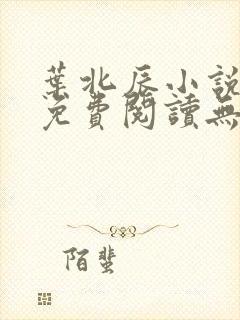 葉北辰小說
免費閱讀無
陌蜚